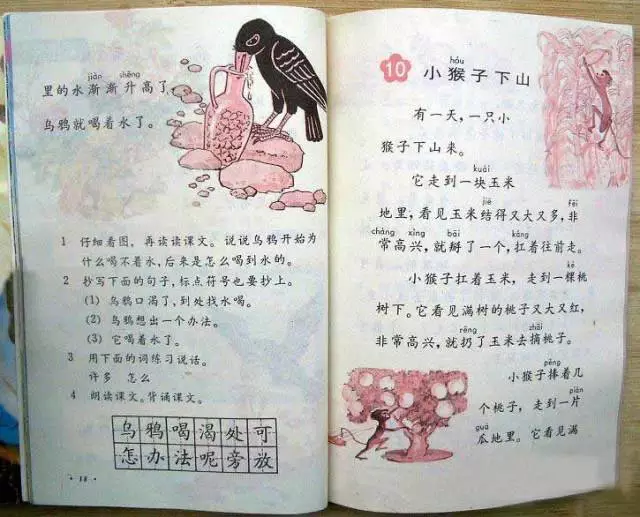 jiàn shēng
里的水渐渐升高了,
乌鸦就喝着水了。
1 仔细看图,再读读课文。说说乌鸦开始为
什么喝不着水,后来是怎么喝到水的。
2 抄写下面的句子,标点符号也要抄上。
(1) 乌鸦口渴了,到处找水喝。
(2) 乌鸦想出一个办法。
(3) 它喝着水了。
3 用下面的词练习说话。
许多 怎么
4 朗读课文。背诵课文。
乌鸦喝渴处可
怎办法呢旁放
·18·
hóu
10 小猴子下山
有一天,一只小
猴子下山来。
kuài
它走到一块玉米
jiē fēi
地里,看见玉米结得又大又多,非
cháng xìng bāi káng
常高兴,就掰了一个,扛着往前走。
小猴子扛着玉米,走到一棵桃
树下。它看见满树的桃子又大又红,
rēng zhāi
非常高兴,就扔了玉米去摘桃子。
pěng
小猴子捧着几
piàn
个桃子,走到一片
guā
瓜地里。它看见满